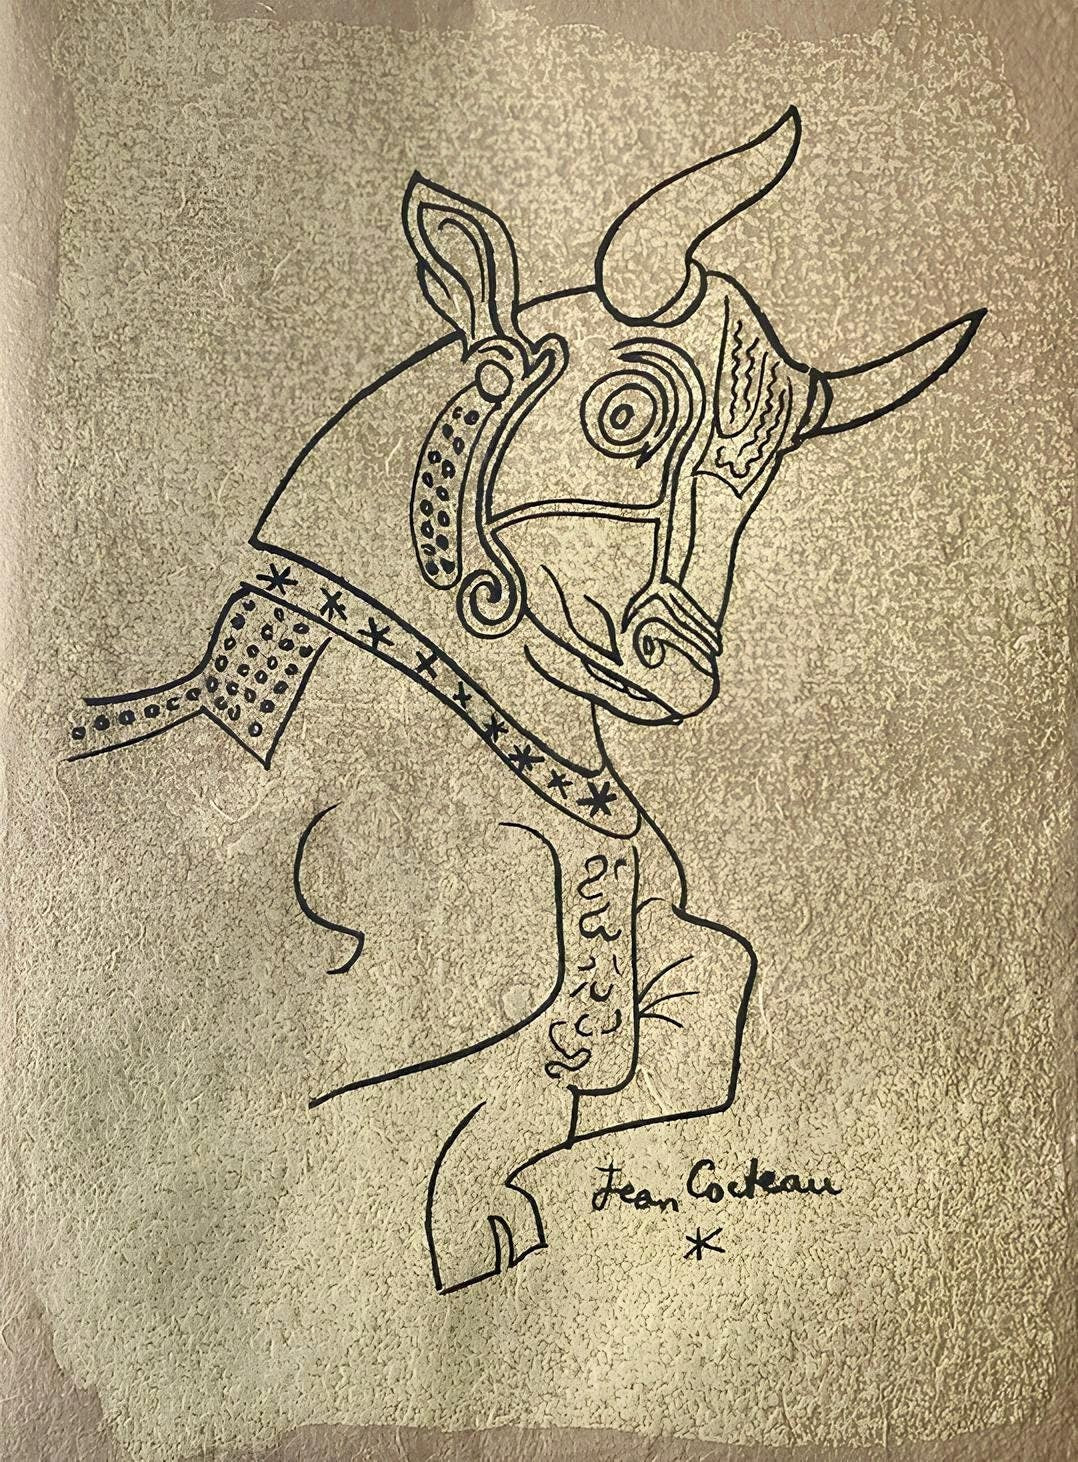 Jean Cocteau
*